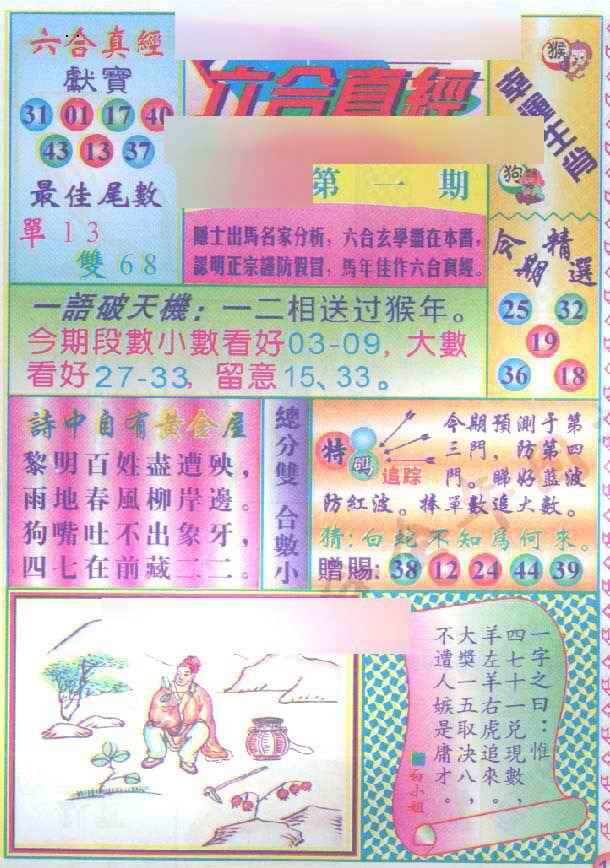 六合真經
獻寶
31 01 17 40
43 13 37
最佳尾數
單13
雙68
六合真經
第一期
隱士出馬名家分析，六合玄學盡在本冊，
認明正宗謹防假冒，馬年佳作六合真經。
猴
幸運生肖
狗
今期精選
25 32
19
36 18
一語破天機：一二相送过猴年。
今期段數小數看好03-09，大數
看好27-33，留意15、33。
詩中自有黃金屋
黎明百姓盡遭殃，
雨地春風柳岸邊。
狗嘴吐不出象牙，
四七在前藏二二。
總分雙 合數小
特碼
追踪
今期預測于第
三門，防第四
門。睇好藍波
防紅波。捧單數追大數。
猜：白蛇不知爲何來。
贈賜：38 12 24 44 39
一字之曰：惟
四七十一兑現數，
羊左羊右虎追來。
大獎一五取决八，
不遭人嫉是庸才。
白小姐